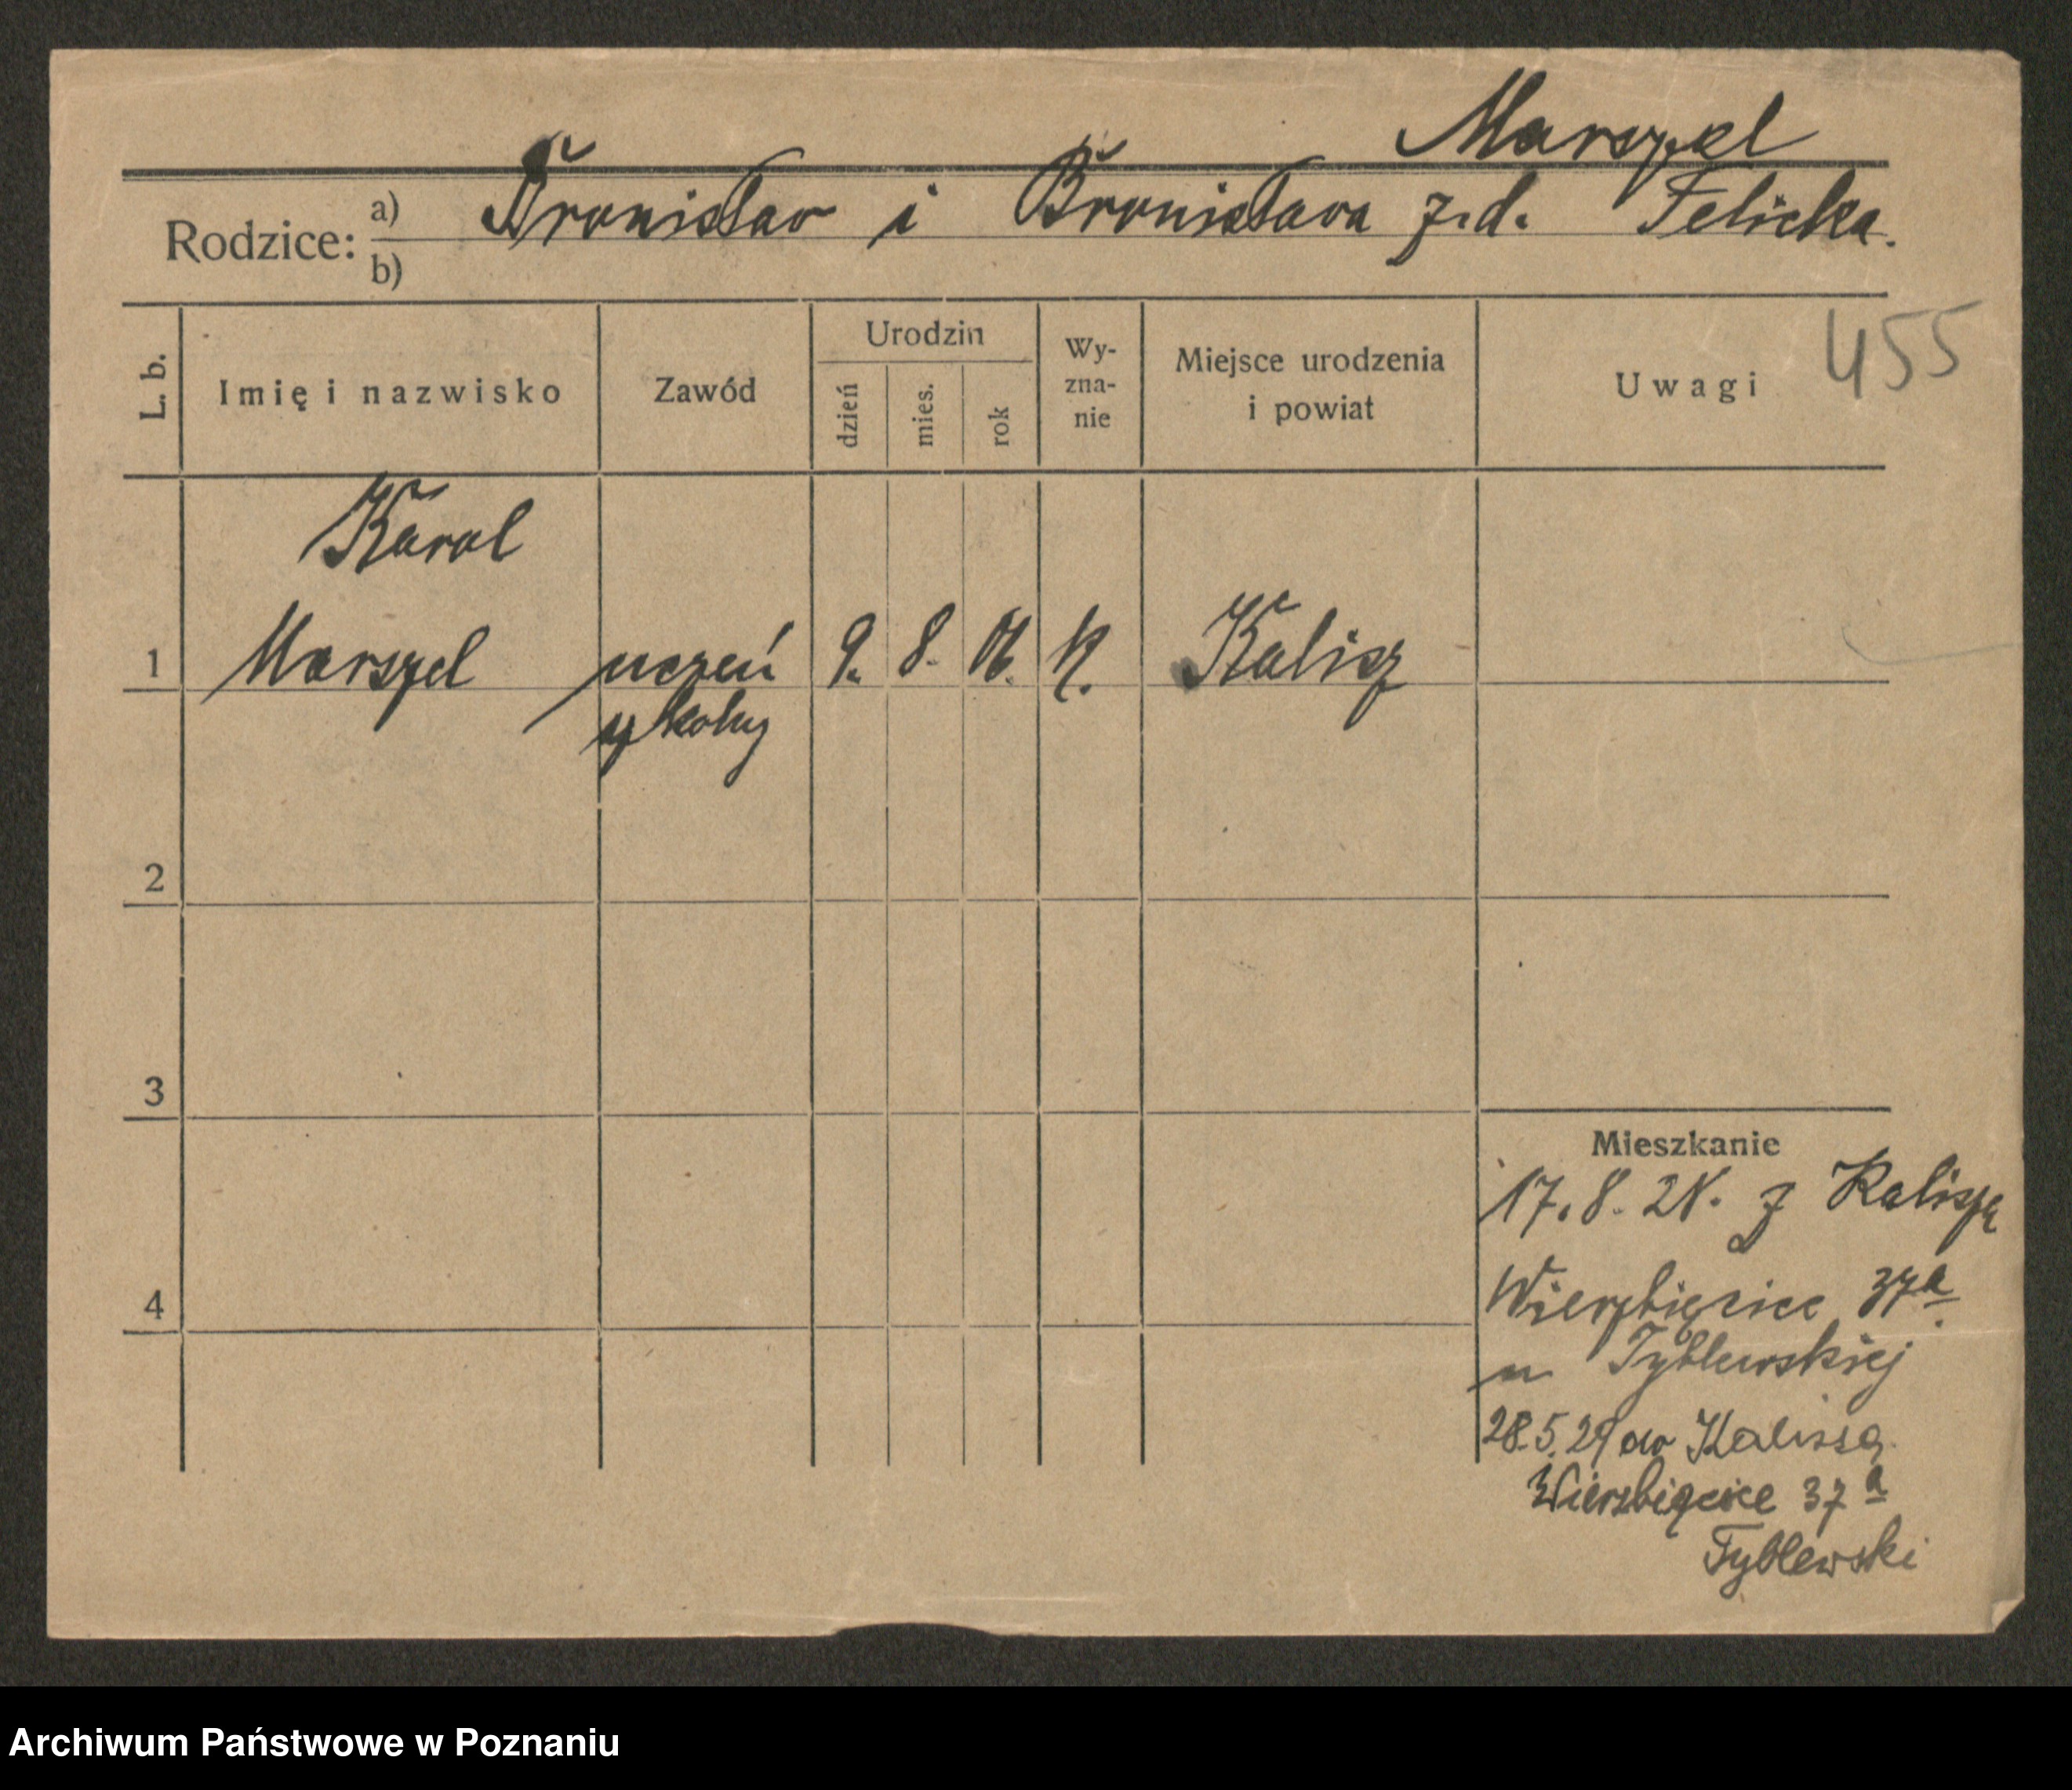 Marszel
Rodzice: a) Bronisław i Bronisława z.d. Felicka.
b)
L. b. Imię i nazwisko Zawód Urodzin dzień mies. rok Wy-zna-nie Miejsce urodzenia i powiat Uwagi 455
Karol
1 Marszel uczeń 9. 8. 06. K. Kalisz
szkoły
2
3
Mieszkanie
17. 8. 28. z Kalisza
4
Wierzbięcice 37a
u Tyblewskiej
28.5.29 do Kalisza
Wierzbięcice 37a
Tyblewski
Archiwum Państwowe w Poznaniu